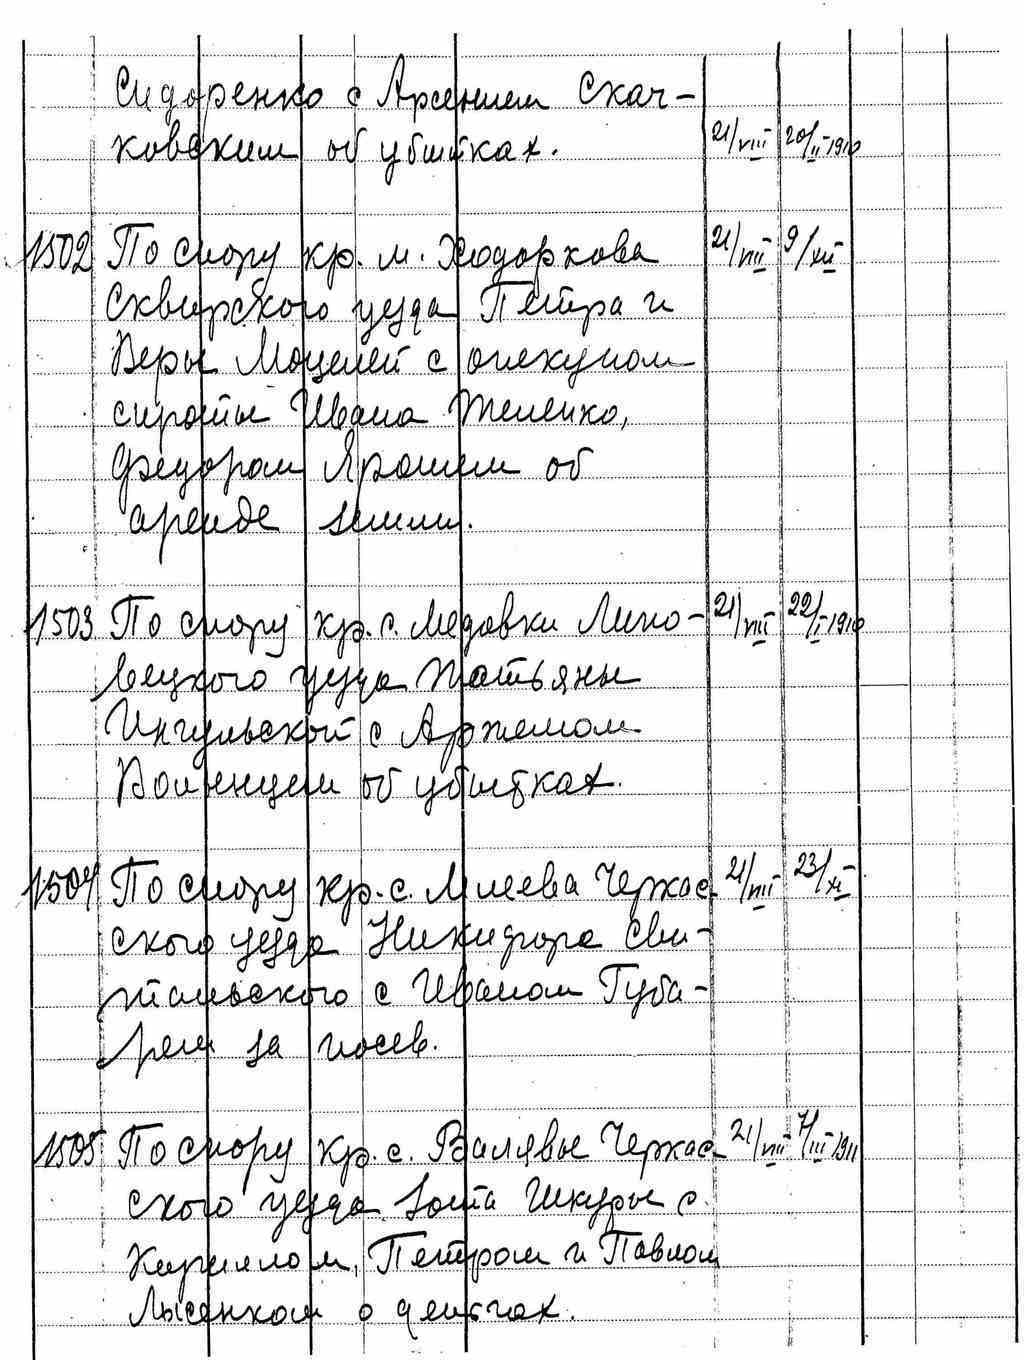 Сидоренко с Арсением Скач-
ковским об убытках. 21/VIII 20/II-1910
1502 По спору кр. м. Ходоркова 21/VIII 9/XII
Сквирского уезда Петра и
Веры Моцелей с опекуном
сироты Ивана Теленко,
Федором Ярошем об
аренде земли.
1503 По спору кр. с. Медовки Липо- 21/VIII 22/I-1910
вецкого уезда Татьяны
Ингульской с Артемом
Волынцем об убытках.
1504 По спору кр. с. Млеева Черкас- 21/VIII 23/XI
ского уезда Никифора Сви-
тальского с Иваном Губа-
рем за посев.
1505 По спору кр. с. Валявы Черкас- 21/VIII /III 1911
ского уезда Зота Шкуры с
Кириллом, Петром и Павлом
Лысенком о деньгах.